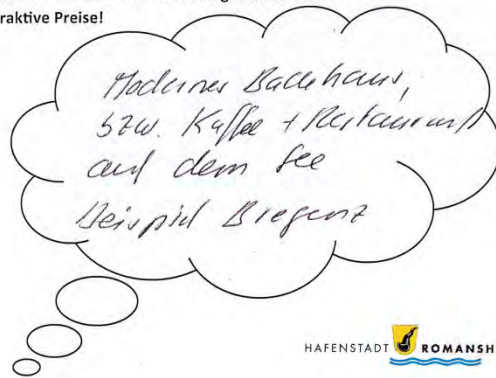 raktive Preise!
Modernes Badehaus,
bzw. Kaffee + Restaurant
auf dem See
Beispiel Bregenz
HAFENSTADT ROMANSH